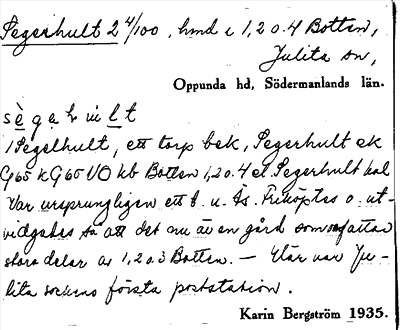 Segerhult 2 4/100, hmd i 1, 2 o. 4 Botten,
Julita sn,
Oppunda hd, Södermanlands län.
sè g e r hu l t
/Segelhult, ett torp bek, Segerhult ek
G65 KG65 VO kb Botten 1, 2 o. 4 el Segerhult kal
Var ursprungligen ett t. u. Ås. Friköptes o. ut-
vidgades så att det nu är en gård som omfattar
stora delar av 1, 2 o 3 Botten. — Här var Ju-
lita sockens första poststation.
Karin Bergström 1935.